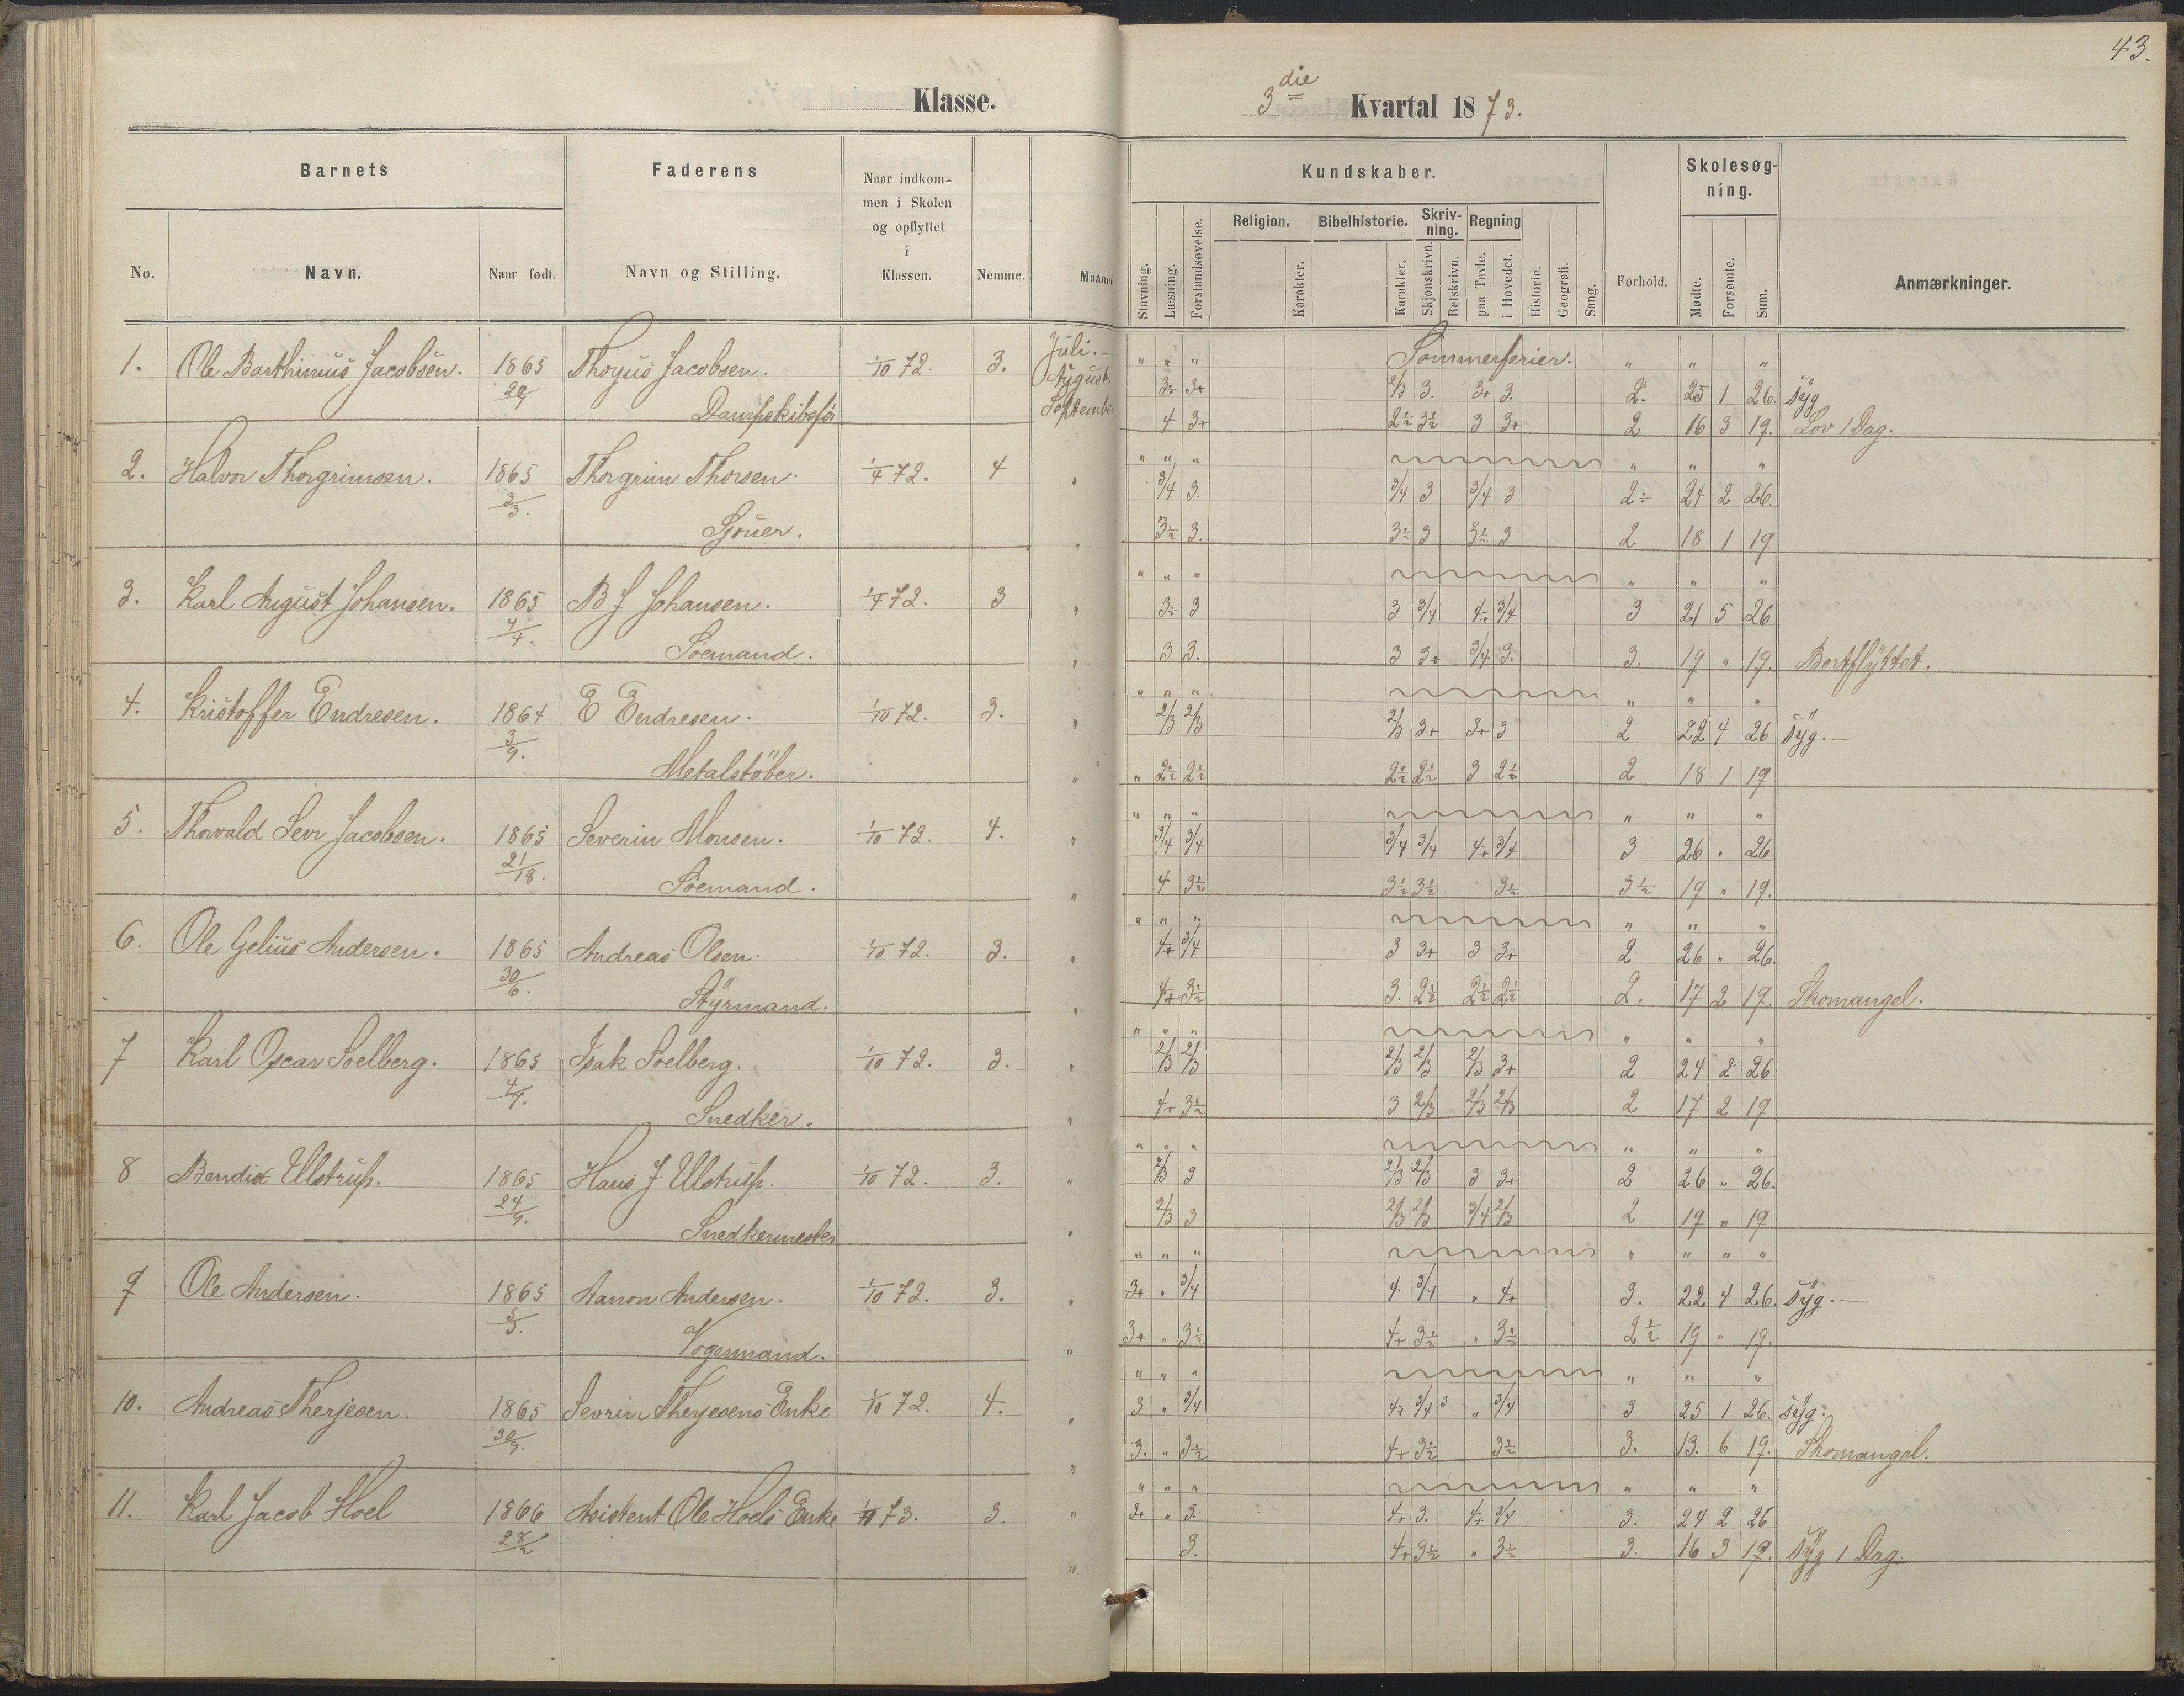 43.
Klasse.
3die Kvartal 1873.
Barnets Faderens Naar indkommen i Skolen og opflyttet i Klassen. Nemme. Maaned
No. Navn. Naar født. Navn og Stilling.
Kundskaber. Forhold. Skolesøgning. Anmærkninger.
Stavning. Læsning. Forstandsøvelse. Religion. Karakter. Bibelhistorie. Karakter. Skrivning. Skjønskrivn. Retskrivn. Regning paa Tavle. i Hovedet. Historie. Geografi. Sang. Mødte. Forsømte. Sum.
1. Ole Barthinius Jacobsen. 1865 Thoyus Jacobsen. 1/10 72. 3. Juli. — " " " Sommerferier. " " "
August 3÷ 3+ 2/3 3. 3+ 3. 2. 25 1 26. Syg
Dampskibsfør September 4 3+ 2½ 3½ 3 3+ 2 16 3 19. Lov 1 Dag.
2. Halvor Thorgrimsen. 1865 Thorgrim Thorsen. 1/4 72. 4 " " " " " "
3/3. 3/4 3. 3/4 3 3/4 3 2÷ 24 2 26.
Sjouer. 3½ 3. 3½ 3 3½ 3 2 18 1 19
3. Karl August Johansen. 1865 B J Johansen. 1/4 72. 3 " " " " " "
4/4. 3÷ 3 3 3/4 4+ 3/4 3 21 5 26
Søemand. 3 3. 3 3÷ 3/4 3. 3. 19 " 19. Bortflyttet.
4. Kristoffer Endresen. 1864 E Endresen. 1/10 72. 3. " " " " " "
3/9. 2/3 2/3 2/3 3+ 3+ 3 2 22 4 26 Syg. —
Metalstøber. " 2½ 2½ 2½ 2½ 3 2½ 2 18 1 19
5. Thorvald Sevr Jacobsen. 1865 Severin Monsen. 1/10 72. 4. " " " " " "
21/18. 3/4 3/4 3/4 3/4 4+ 3/4 3 26 " 26
Søemand. 4 3½ 3½ 3½ 3½ 3½ 19 " 19.
6. Ole Gelius Andersen. 1865 Andreas Olsen. 1/10 72. 3. " " " " " "
30/6. 4+ 3/4 3 3+ 3 3+ 2 26 " 26.
Styrmand. 4+ 3½ 3. 2½ 2½ 2½ 2. 17 2 19. Skomangel.
7 Karl Oscar Soelberg. 1865 Isak Soelberg. 1/10 72. 3. " " " " " "
4/9. 2/3 2/3 2/3 2/3 2/3 3+ 2 24 2 26
Snedker. 4+ 3½ 3 2/3 2/3 2/3 2 17 2 19
8 Bendix Ulstrup. 1865 Hans J Ulstrup. 1/10 72. 3. " " " " " "
24/9. 2/3 3 2/3 2/3 3 3+ 2 26 " 26.
Snedkermester 2/3 3 2/3 2/3 3/4 2/3 2 19 " 19
9 Ole Andersen. 1865 Aanon Andersen. 1/10 72. 3. " " " " " " "
5/3. 3+ " 3/4 4 3/4 " 4+ 3. 22 4 26. Syg. —
Vognmand. 3+ " 3½ 4+ 3½ " 3½ 2½ 19 " 19.
10. Andreas Therjesen. 1865 Sevrin Therjesens Enke 1/10 72. 4. " " " " " "
30/9. 3 " 3/4 4+ 3/4 3 " 3/4 3 25 1 26. Syg.
3. " 3½ 4+ 3½ 3½ 3. 13. 6 19. Skomangel.
11. Karl Jacob Hoel 1866 Asistent Ole Hoels Enke 73. 3. " " " " " "
28/2 3+ " 3. 4+ 3. 4+ 3/4 3. 24 2 26
3. 4+ 3½ " 3½ 3. 16 3 19. Syg 1 Dag.